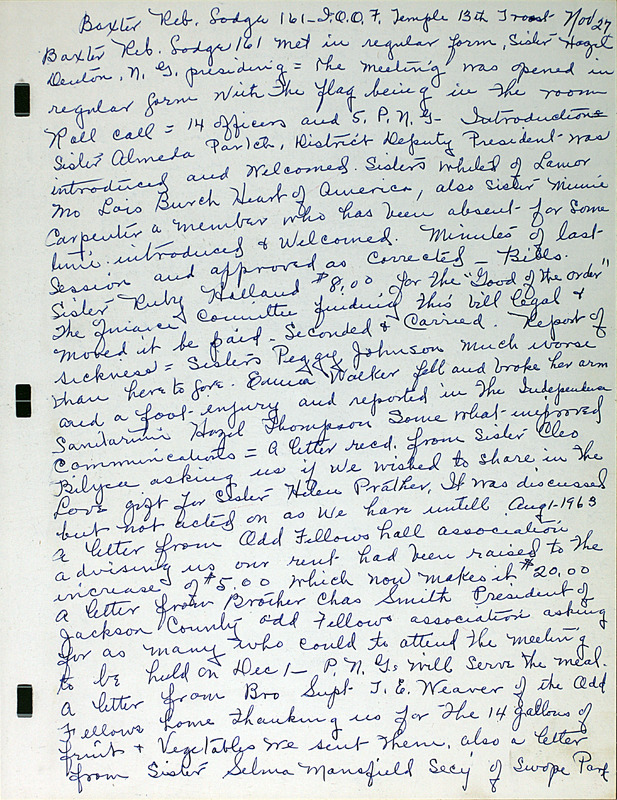 Baxter Reb. Lodge 161 - I.O.O.F. Temple 13th Troost Nov 27
Baxter Reb. Lodge 161 met in regular form, Sister Hazel
Denton, N. G. presiding = The meeting was opened in
regular form with the flag being in the room
Roll call = 14 officers and 5. P. N. G - Introductions
Sister Almeda Parish, District Deputy President was
introduced and Welcomed. Sisters of Lamar
Mo Lois Burch Heart of America, also Sister Minnie
Carpenter a member who has been absent for Some
time introduced & Welcomed. Minutes of last
Session and approved as corrected - Bills.
Sister Ruby Holland $8.00 for the "Good of the order"
The Finance Committee finding This bill legal &
moved it be paid - Seconded & Carried. Report of
sickness = Sisters Peggy Johnson much worse
than here to fore. Emma Walker fell and broke her arm
and a foot injury and reported in The Independence
Sanitarium Hazel Thompson Some what improved
Communications = A letter recd. from Sister Cleo
Bilyea asking us if We wished to share in The
Love gift for Sister Helen Prather, It was discussed
but not acted on as We have untill Aug 1-1963
A letter from Odd Fellows hall association
advising us our rent had been raised to The
increase of $5.00 which now makes it $20.00
A letter from Brother Chas Smith President of
Jackson County odd Fellows association asking
for as many who could to attend The meeting
to be held on Dec 1 - P. N. Gs Will Serve The meal.
A letter from Bro Supt J. E. Weaver of the Odd
Fellows home Thanking us for The 14 gallons of
fruit & Vegetables We sent Them, also a letter
from Sister Selma Mansfield Secy of Swope Park